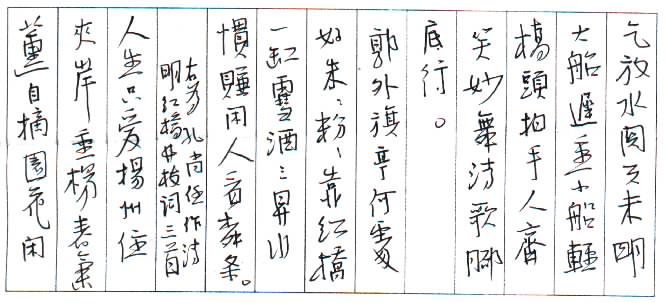 乞放水関天未明
大船遲重小船輕
橋頭拍手人齊
笑妙舞清歌腳
底行。
郭外旗亭何處
好朱ミ粉ミ靠紅橋
一缸雪酒三昇小
慣賺閑人
右為孔尚任作清
明紅橋竹枝詞三首
人生只愛揚州住
夾岸垂楊春氣
薰自摘園花閑